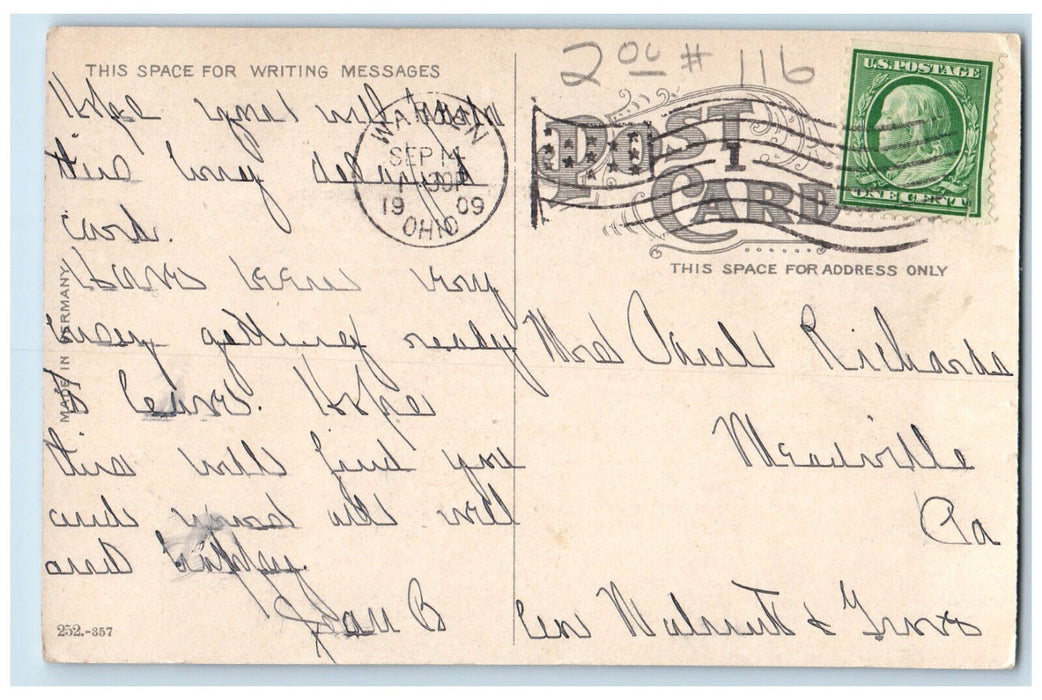 2 00 # 116
THIS SPACE FOR WRITING MESSAGES
U.S. POSTAGE
ONE CENT
WARREN
SEP 14
19 09
OHIO
POST CARD
1
THIS SPACE FOR ADDRESS ONLY
MADE IN GERMANY
Hope you will
this long delayed
card.
Have been very
busy getting ready
to leave. Hope
this will find you
and yours all well
and happy.
Jean B
252.-357
Mrs Paul Richards
Meadville
Pa
Cor Walnut & Grove